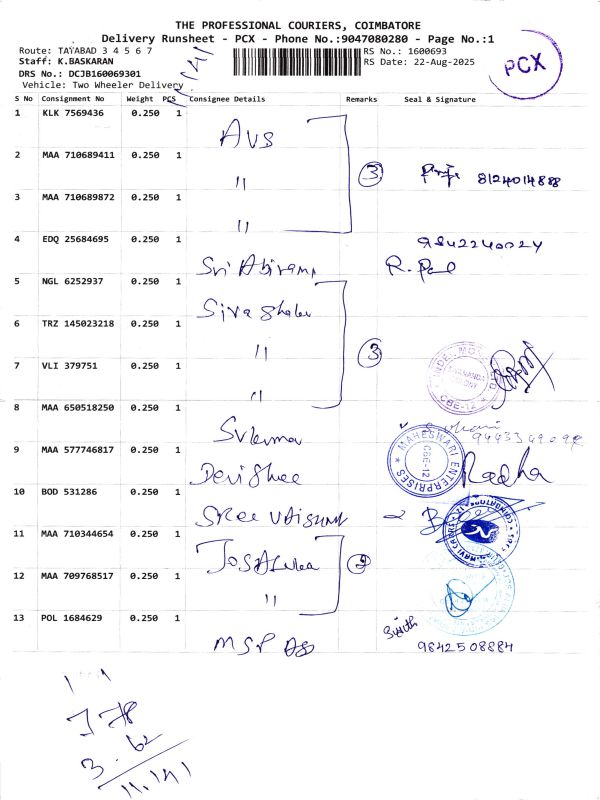 THE PROFESSIONAL COURIERS, COIMBATORE
Delivery Runsheet - PCX - Phone No.:9047080280 - Page No.:1
Route: TATABAD 3 4 5 6 7
RS No.: 1600693
Staff: K.BASKARAN
RS Date: 22-Aug-2025
DRS No.: DCJB160069301
Vehicle: Two Wheeler Delivery
PCX
S No Consignment No Weight PCS Consignee Details Remarks Seal & Signature
1 KLK 7569436 0.250 1 AVS
2 MAA 710689411 0.250 1 " 3 8124014888
3 MAA 710689872 0.250 1 "
4 EDQ 25684695 0.250 1 Sri Abirami 9842240024
R. Paul
5 NGL 6252937 0.250 1 Siva
6 TRZ 145023218 0.250 1 " 3
7 VLI 379751 0.250 1 " CBE-12
8 MAA 650518250 0.250 1
9 MAA 577746817 0.250 1 Devi Shree MAHESWARI ENTERPRISES CBE-12 Radha
10 BOD 531286 0.250 1 Sree
11 MAA 710344654 0.250 1 2
12 MAA 709768517 0.250 1 "
13 POL 1684629 0.250 1 MSP 9842508884
11,141